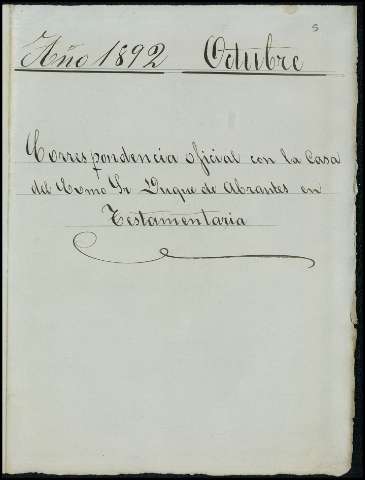 5
Año 1892 Octubre
Correspondencia oficial con la Casa
del Exmo Sr Duque de Abrantes en
Testamentaria